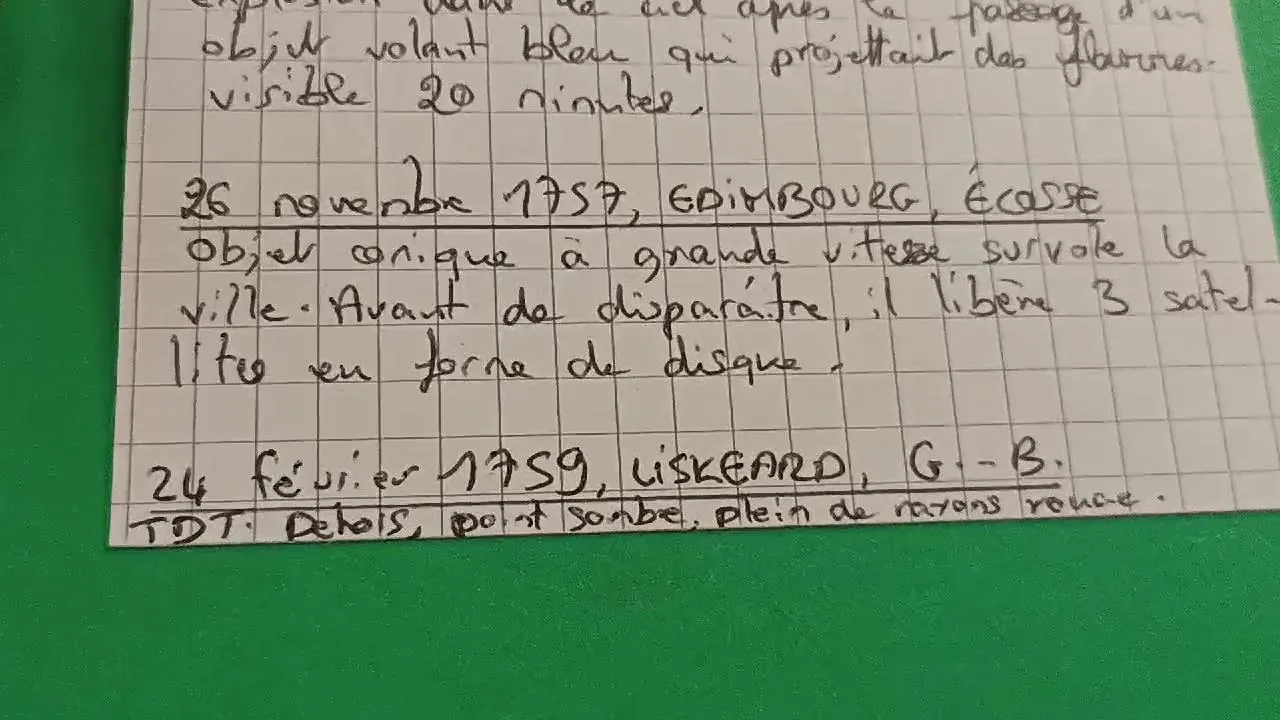 explosion dans le ciel après le passage d'un
objet volant bleu qui projettait des flammes.
visible 20 minutes.
26 novembre 1757, EDIMBOURG, ÉCOSSE
Objet conique à grande vitesse survole la
ville. Avant de disparaître, il libère 3 satel-
lites en forme de disque.
24 février 1759, LISKEARD, G.-B.
TDT. Dehors, point sombre, plein de rayons rouges.